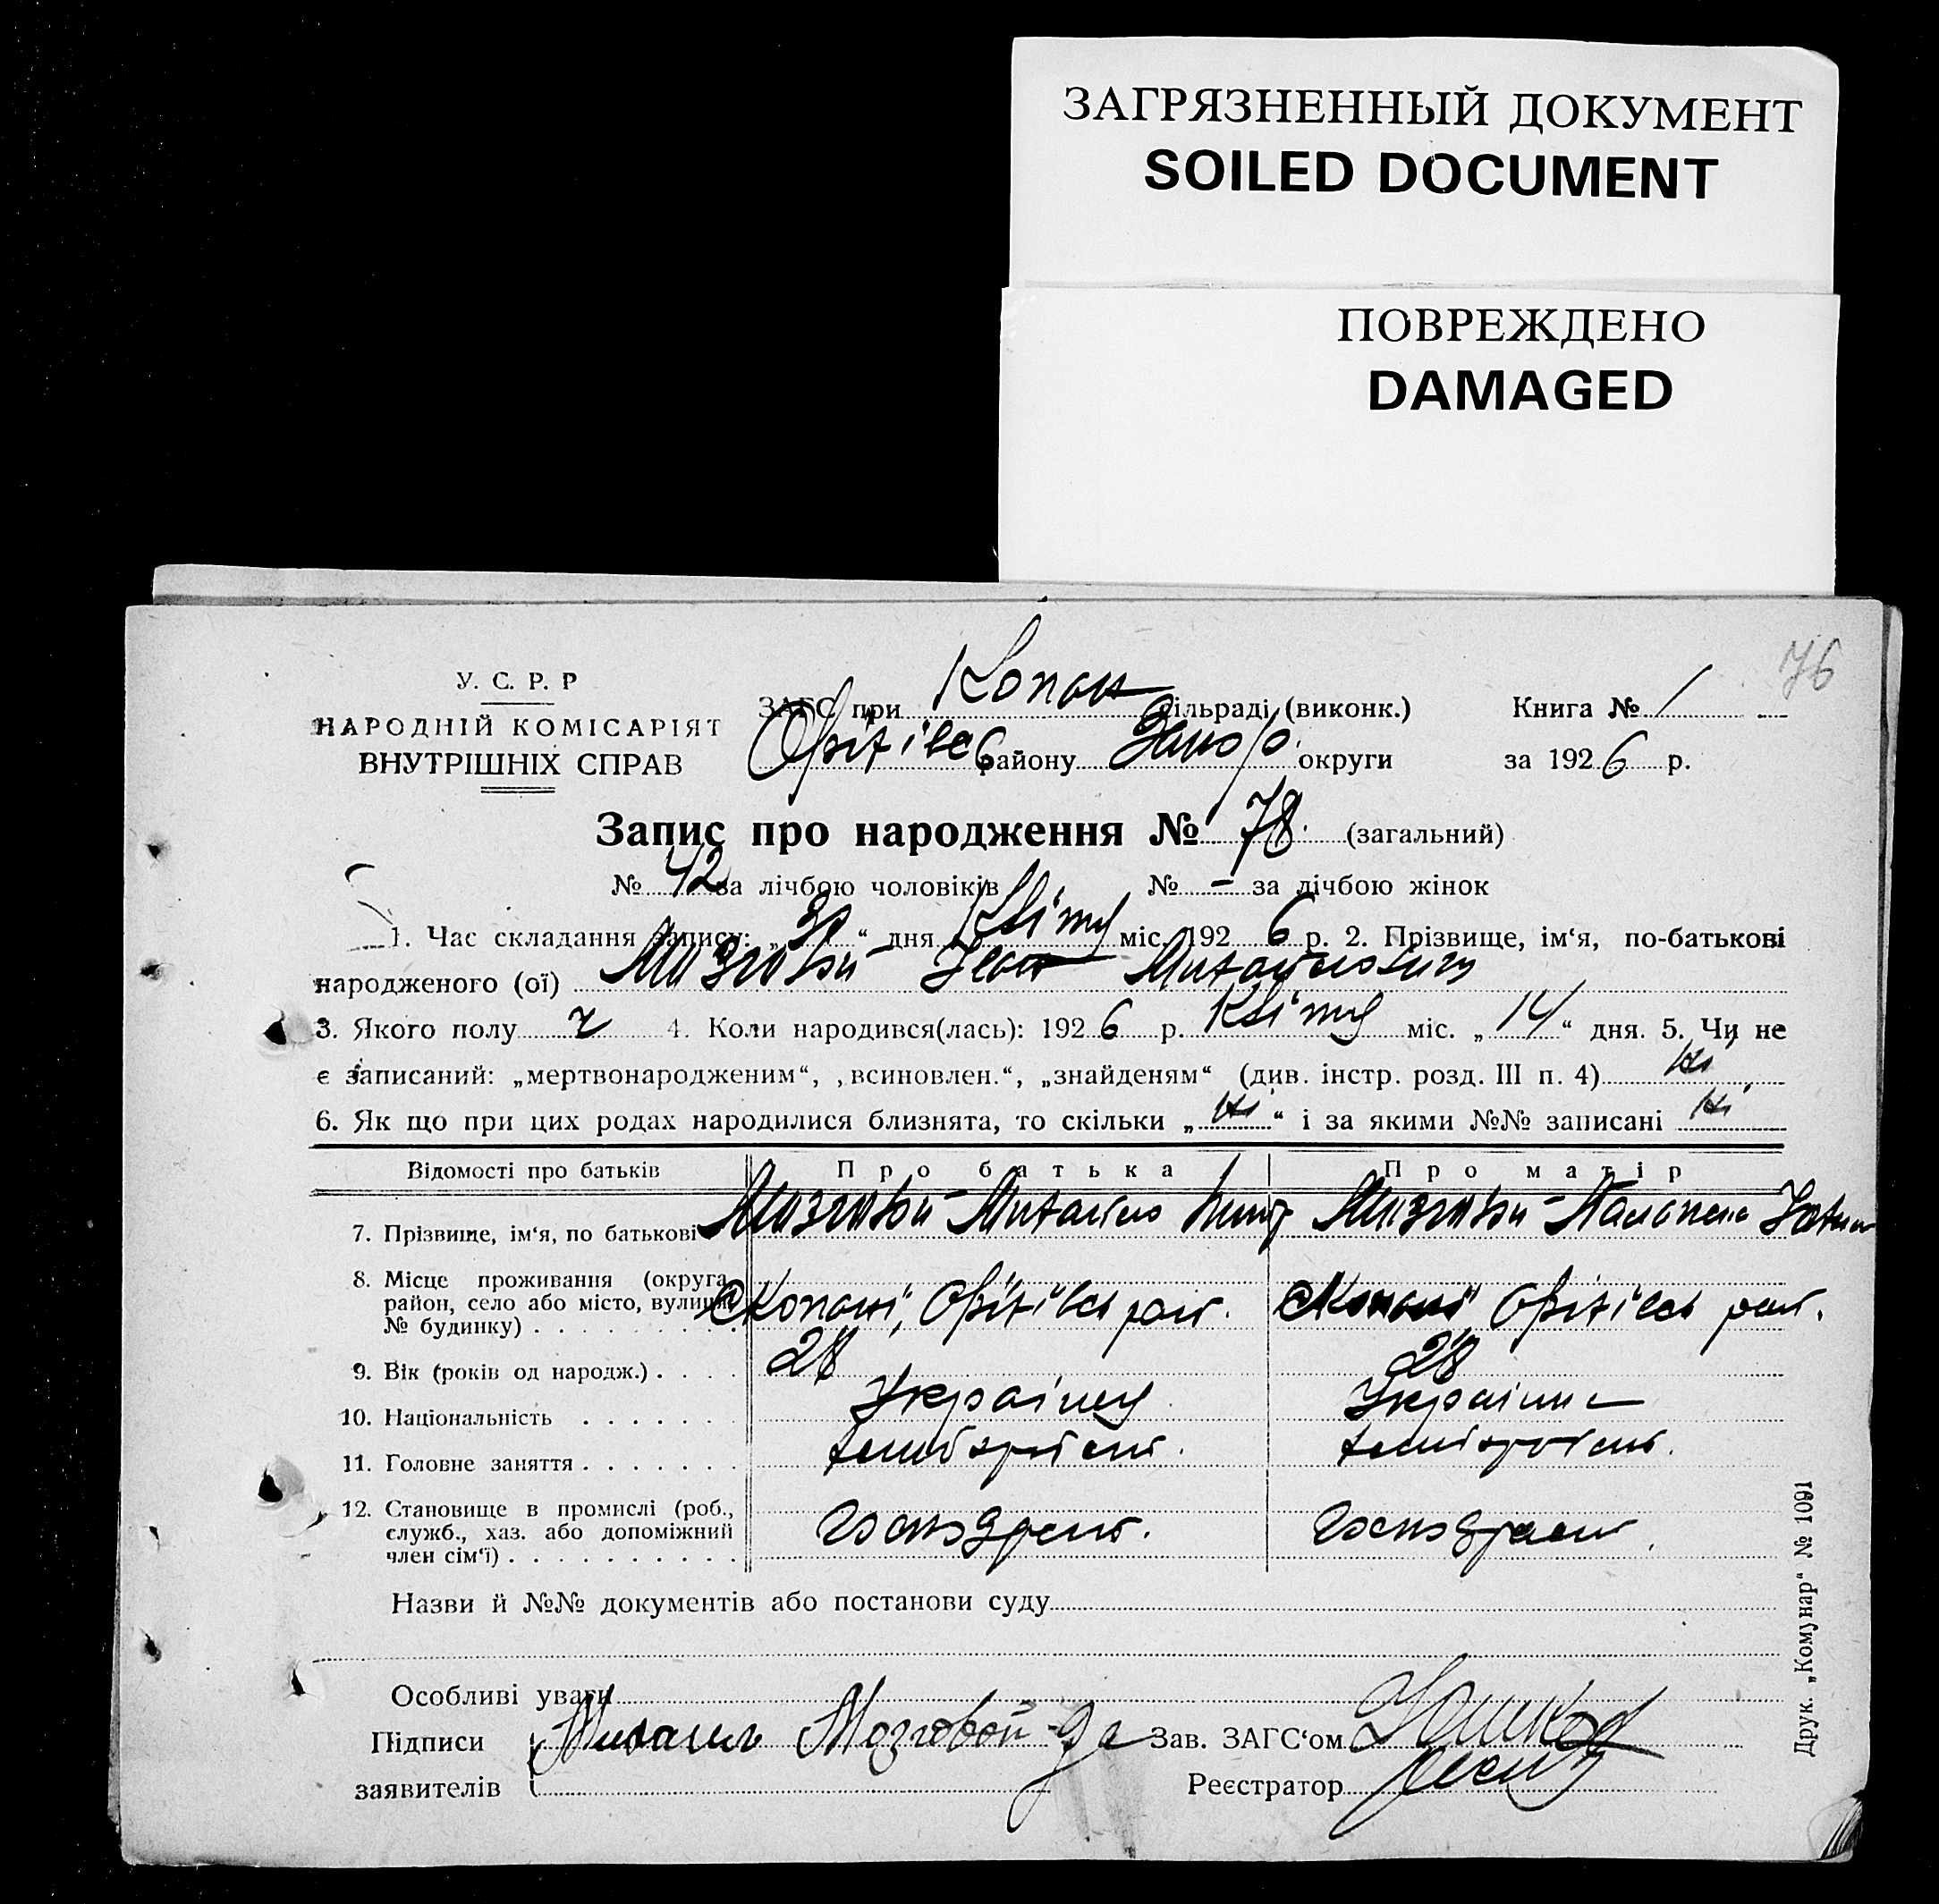 ЗАГРЯЗНЕННЫЙ ДОКУМЕНТ
SOILED DOCUMENT
ПОВРЕЖДЕНО
DAMAGED
76
У. С. Р. Р
НАРОДНІЙ КОМІСАРІЯТ
ВНУТРІШНІХ СПРАВ
ЗАГС при Копан сільраді (виконк.) Книга № 1
Оріхівс району Запор. округи за 1926 р.
Запис про народження № 78. (загальний)
№ 42 за лічбою чоловіків № – за лічбою жінок
1. Час складання запису: „ “ дня Квітня міс. 1926 р. 2. Прізвище, ім‘я, по-батькові
народженого (ої) Мозговий Іван Михайлович
3. Якого полу ч 4. Коли народився(лась): 1926 р. Квітня міс. „14“ дня. 5. Чи не
є записаний: „мертвонародженим“, „всиновлен.“, „знайденям“ (див. інстр. розд. III п. 4) ні
6. Як що при цих родах народилися близнята, то скільки „ні“ і за якими №№ записані ні
Відомості про батьків Про батька Про матір
7. Прізвище, ім‘я, по батькові Мозговий Михайло Мозгова
8. Місце проживання (округа, район, село або місто, вулиця, № будинку) с Копані, Оріхівськ район. с Копані Оріхівськ район.
9. Вік (років од народж.) 28 28
10. Національність Українець Українка
11. Головне заняття хлібороб хлібороб
12. Становище в промислі (роб., служб., хаз. або допоміжний член сім‘ї)
Назви й №№ документів або постанови суду
Особливі уваги
Підписи Михаил Мозговой Зав. ЗАГС‘ом
заявителів Реєстратор
Друк. „Комунар“ № 1091